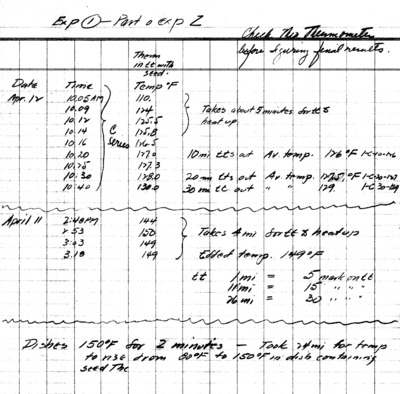 Exp ① - Part o exp 2
Check this Thermometer
before figuring final results.
Therm
in tt with
seed.
Date Time Temp °F
Apr. 12 10.05 AM 110.
10.09 124
10.12 125.5 Takes about 5 minutes for tt to
10.14 C 125.8 heat up.
10.16 series 126.5
10.20 127. 10 mi tts out Av. temp. 126 °F
10.25 127.3
10.30 128.0 20 mi tts out Av temp.
10.40 130.0 30 mi tt out " " 129.
April 11 2:48 PM 144
2 53 150 Takes 4 mi for tt to heat up
3.03 149
3.18 149 Effed temp. 149°F
tt 1 mi = 5 mark on tt
11 mi = 15 " " "
26 mi = 30 " " "
Dishes 150°F for 2 minutes - Took 24 mi for temp
to rise from 80°F to 150°F in dish containing
seed The